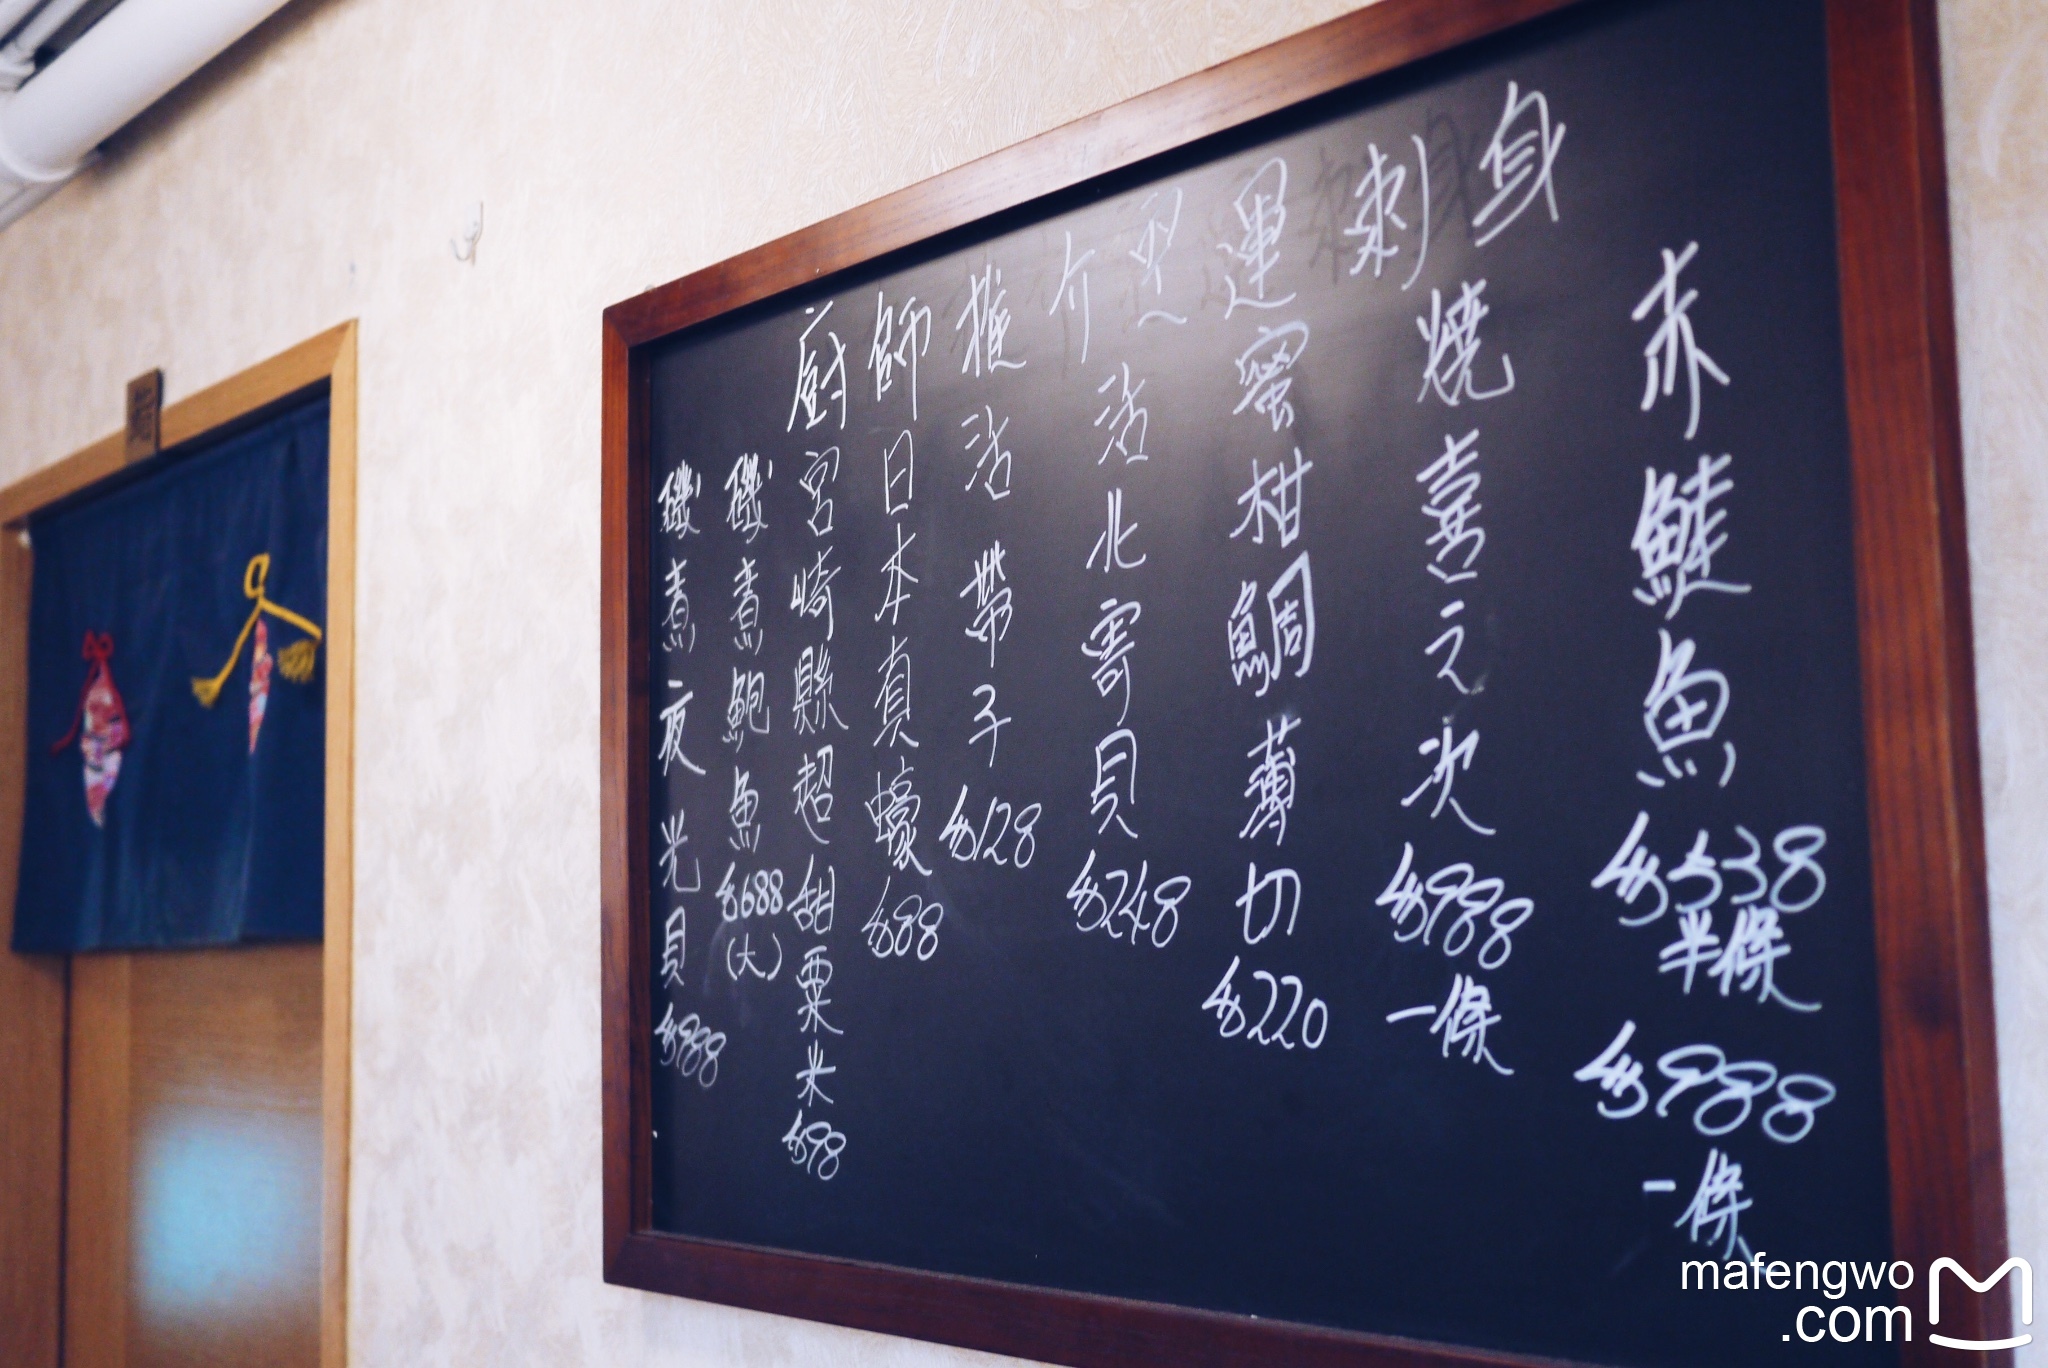 廚師推介空運刺身
赤鯥魚$538
半條
$988
一條
燒喜之次$988
一條
蜜柑鯛薄切$220
活北寄貝$248
活帶子$128
日本真蠔$88
宮崎縣超甜粟米$98
磯煮鮑魚$688
(大)
磯煮夜光貝$988
mafengwo
.com